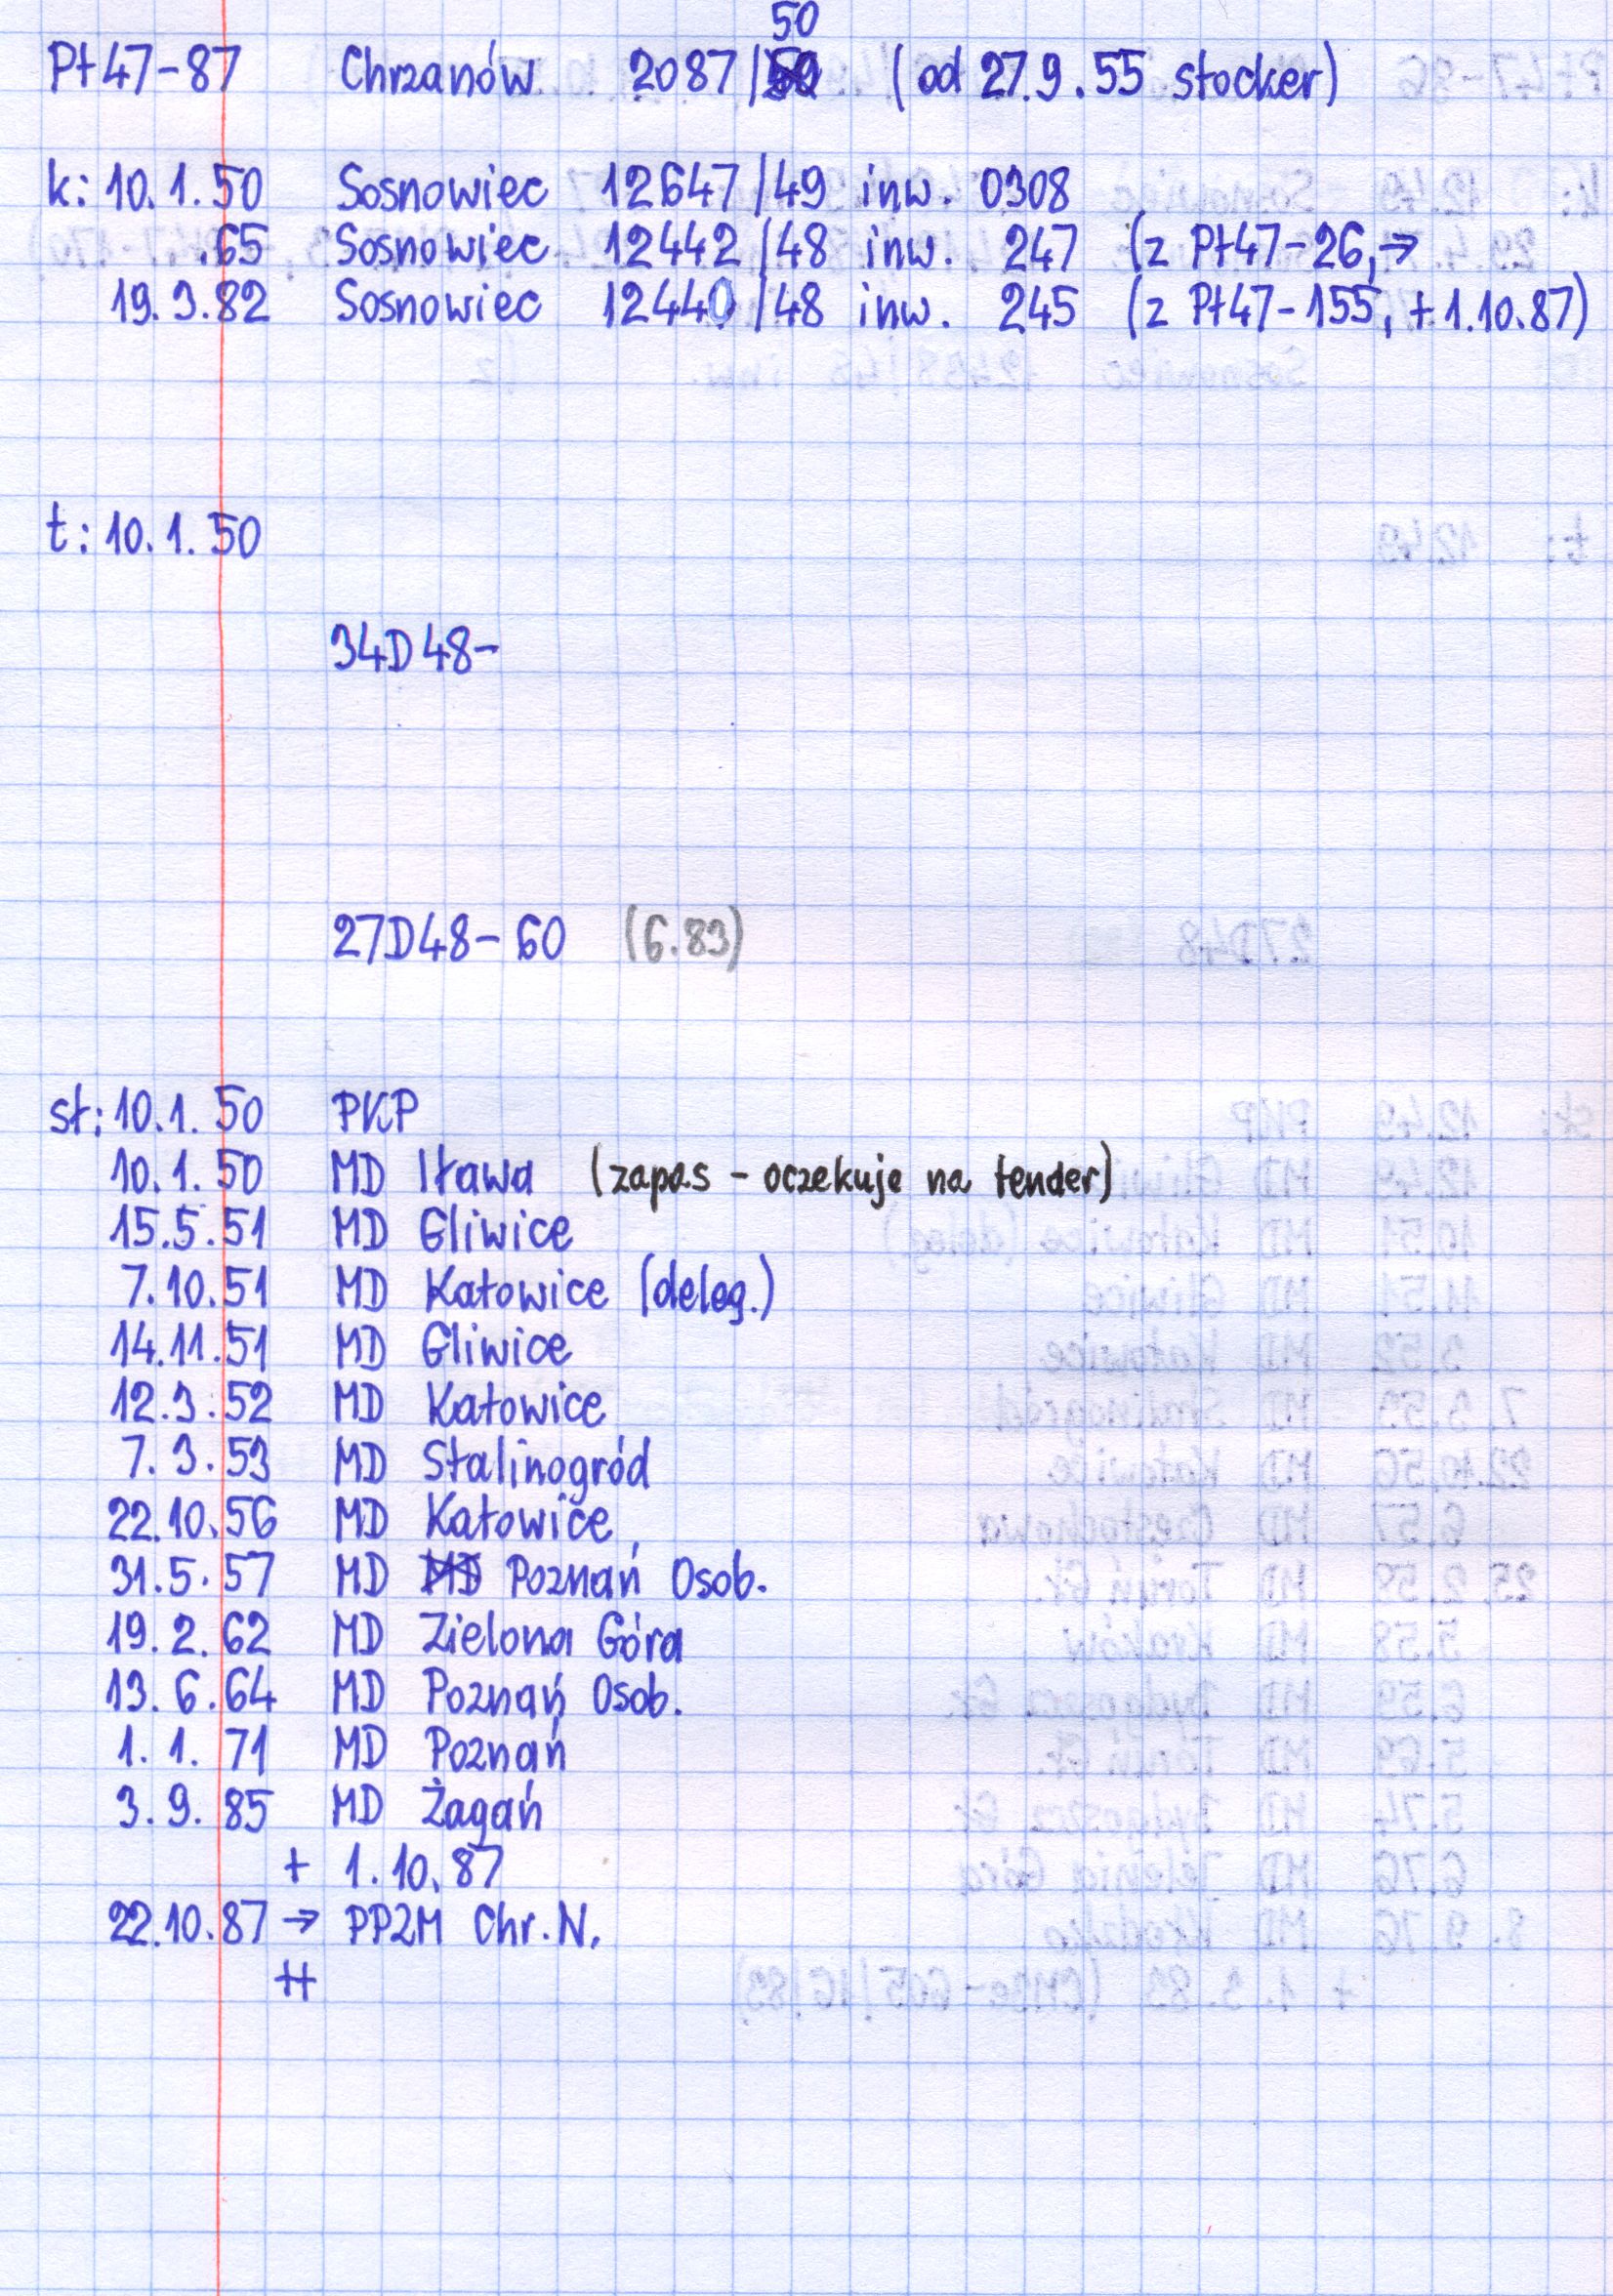 50
Pt47-87 Chrzanów 2087/50 (od 27.9.55 stocker)
k: 10.1.50 Sosnowiec 12647/49 inw. 0308
.65 Sosnowiec 12442/48 inw. 247 (z Pt47-26, →
19.3.82 Sosnowiec 12440/48 inw. 245 (z Pt47-155, +1.10.87)
t: 10.1.50
34D48-
27D48-60 (6.83)
st: 10.1.50 PKP
10.1.50 MD Iława (zapas - oczekuje na tender)
15.5.51 MD Gliwice
7.10.51 MD Katowice (deleg.)
14.11.51 MD Gliwice
12.3.52 MD Katowice
7.3.53 MD Stalinogród
22.10.56 MD Katowice
31.5.57 MD MD Poznań Osob.
19.2.62 MD Zielona Góra
13.6.64 MD Poznań Osob.
1.1.71 MD Poznań
3.9.85 MD Żagań
+ 1.10.87
22.10.87 → PP2M Chr. N.
++